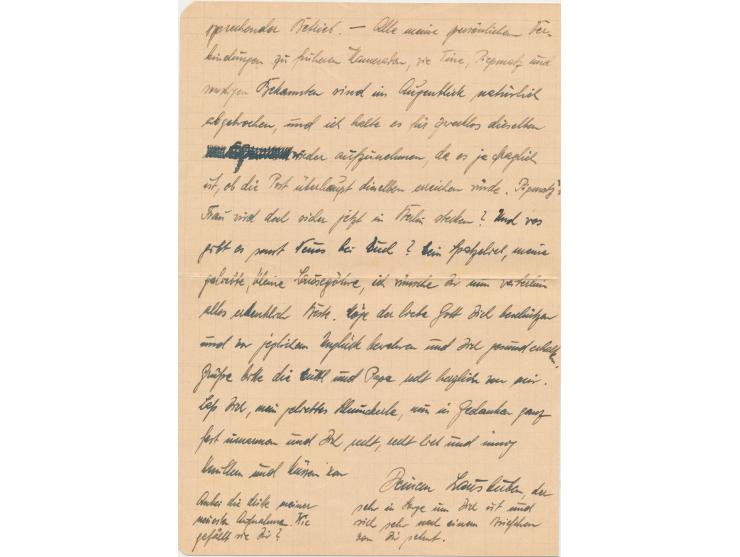 sprechender Betrieb. — Alle meine persönlichen Ver-
bindungen zu früheren Kameraden, wie Tine, Piepmatz und
sonstigen Bekannten sind im Augenblick natürlich
abgebrochen, und ich halte es für zwecklos dieselben
wieder aufzunehmen, da es ja fraglich
ist, ob die Post überhaupt dieselben erreichen würde. Piepmatz's
Frau wird doch sicher jetzt in Berlin stecken? Und was
gibt es sonst Neues bei Euch? Mein Spatzelieb, meine
geliebte, kleine Lausegöhre, ich wünsche Dir nun weiterhin
alles erdenklich Beste. Möge der liebe Gott Dich beschützen
und vor jeglichem Unglück bewahren und Dich gesund erhalten.
Grüße bitte die Mutti und Papa recht herzlich von mir.
Laß Dich, mein geliebtes Schnuckerle, nun in Gedanken ganz
fest umarmen und Dich recht, recht lieb und innig
knüllen und küssen von
Deinem Lausbuben, der
sehr in Sorge um Dich ist und
sich sehr nach einem Briefchen
von Dir sehnt.
Anbei die Mitte meiner
neuesten Aufnahme. Wie
gefällt sie Dir?